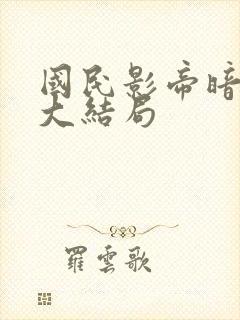 國民影帝暗
大結局
羅雲歌